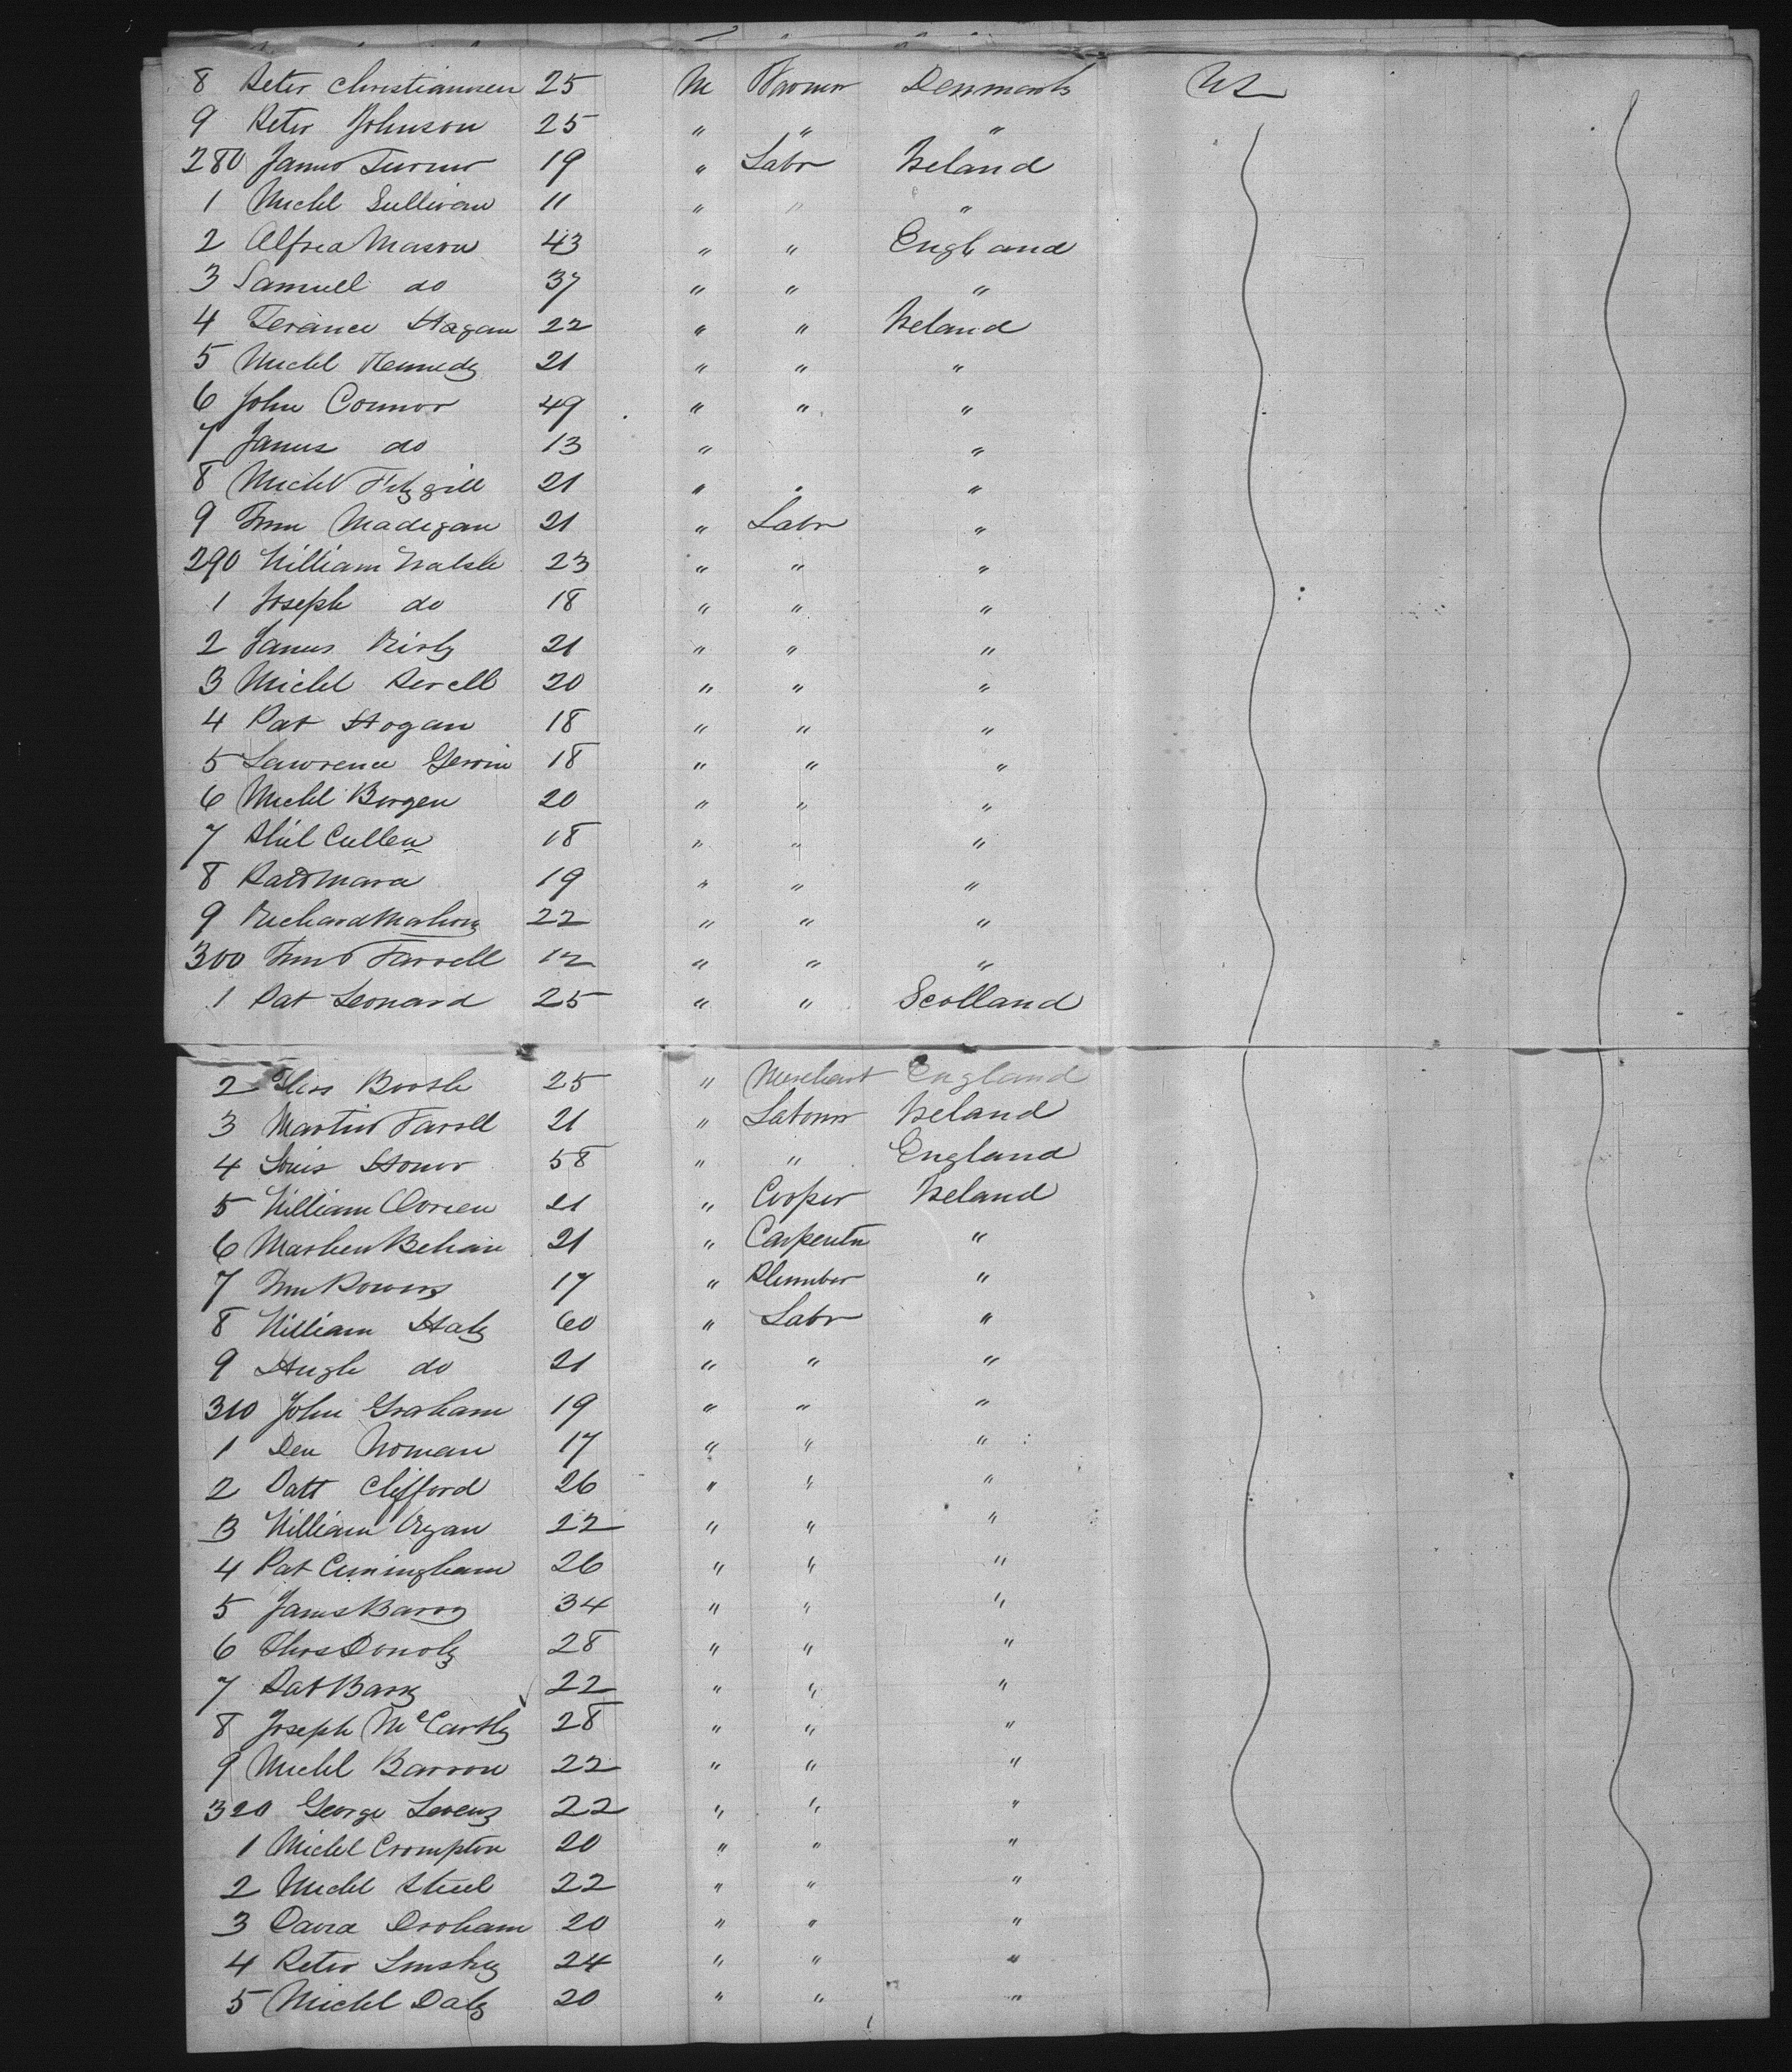 8 Peter Christiannsen 25 M Farmer Denmark US
9 Peter Johnson 25 " " "
280 James Turner 19 " Labr Ireland
1 Michl Sullivan 11 " " "
2 Alfred Mason 43 " " England
3 Samuell do 37 " " "
4 Terance Hagan 22 " " Ireland
5 Michl Kennedy 21 " " "
6 John Connor 49 " " "
7 James do 13 " "
8 Michl Fitzgill 21 " "
9 Madigan 21 " Labr "
290 William Walsh 23 " " "
1 Joseph do 18 " " "
2 James 21 " " "
3 Michl 20 " " "
4 Pat Hogan 18 " " "
5 Lawrence 18 " " "
6 Michl Bergen 20 " " "
7 Phil Cullen 18 " " "
8 Mara 19 " " "
9 Richard Mahony 22 " " "
300 Farrell 12 " " "
1 Pat Leonard 25 " " Scotland
2 Thos Booth 25 " Merchant England
3 Martin Farrell 21 " Labourer Ireland
4 Louis 58 " " England
5 William 21 " Cooper Ireland
6 Behan 21 " Carpenter "
7 Powers 17 " Plumber "
8 William Haly 60 " Labr "
9 Hugh do 21 " " "
310 John Graham 19 " " "
1 Den 17 " " "
2 Patt Clifford 26 " " "
3 William Ryan 22 " " "
4 Pat Cuningham 26 " " "
5 James Barry 34 " " "
6 Thos 28 " " "
7 Pat Barry 22 " " "
8 Joseph McCarthy 28 " " "
9 Michl Barron 22 " " "
320 George 22 " " "
1 Michl Crompton 20 " " "
2 Michl 22 " " "
3 David Droham 20 " " "
4 Peter 24 " " "
5 Michl Daly 20 " " "